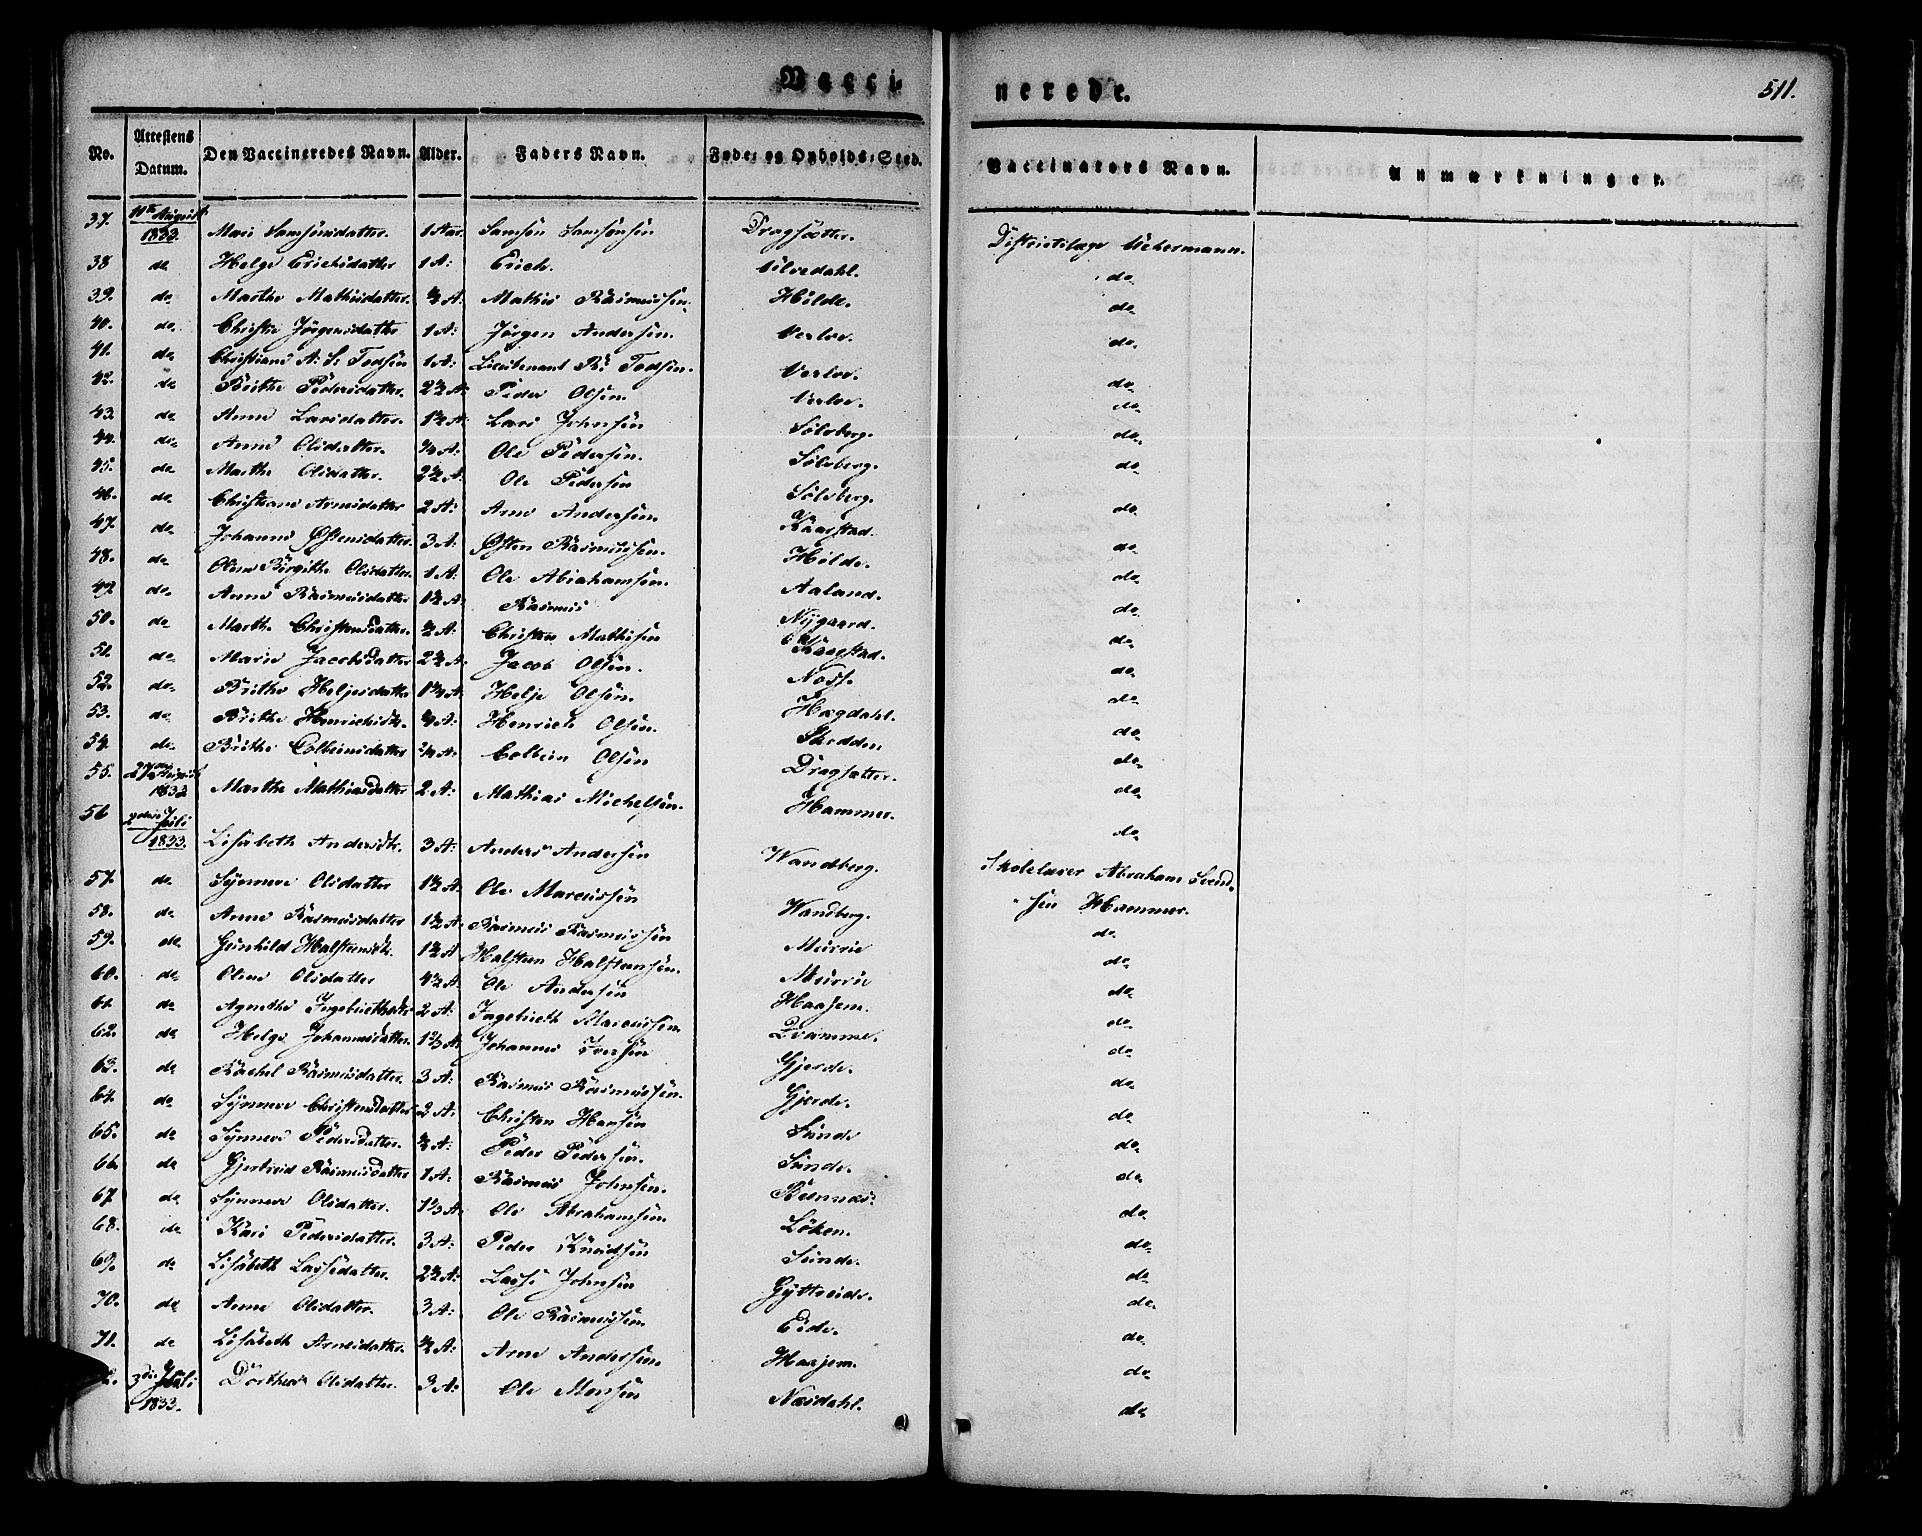 Vacci-
nerede.
511.
No. Attestens Datum. Den Vaccineredes Navn. Alder. Faders Navn. Føde- og Opholds-Sted. Vaccinators Navn. Anmærkninger.
37. 11te August 1833. Mari Samsonsdatter 1 Aar. Samson Samsonsen Dragsætter. Districtslæge Uchermann.
38 do Helge Erichsdatter 1 A: Erich. Ulvedahl. do
39. do Marthe Mathisdatter. ½ A: Mathis Rasmussen. Hilde. do
40. do Christie Jørgensdatter 1 A: Jørgen Andersen. Verloe. do
41. do Christiane A: S: Todsen 1 A: Lieutenant R: Todsen. Verloe. do
42. do Brithe Pedersdatter. 2½ A: Peder Olsen. Verloe. do
43. do Anne Larsdatter. 1½ A Lars Johnsen Sølvberg. do
44. do Anne Olsdatter. ¼ A: Ole Pedersen. Sølvberg. do
45. do Marthe Olsdatter. 2½ A: Ole Pedersen Sølvberg. do
46. do Christiane Arnesdatter 2 A: Arne Andersen. Kaarstad. do
47. do Johanne Østensdatter. 3 A: Østen Rasmussen. Hilde. do
48. do Oline Birgithe Olsdatter. 1 A: Ole Abrahamsen. Aaland. do
49. do Anne Rasmusdatter 1½ A: Rasmus Nygaard. do
50. do Marthe Christensdatter. ½ A: Christen Mathisen Kaarstad. do
51. do Marie Jacobsdatter 2½ A: Jacob Olsen. Noss. do
52. do Brithe Heljesdatter 1¼ A: Helje Olsen. Hægdahl. do
53. do Brithe Henrichsdtr. ¼ A: Henrich Olsen. Skedden do
54. do Brithe Colbeinsdatter ¾ A: Colbein Olsen Dragsætter. do
55. 27de August 1833 Marthe Mathiasdatter 2 A: Mathias Michelsen. Hammer. do
56 2den Juli 1833. Lisabeth Andersdtr. 3 A: Anders Andersen Wandberg. Skolelærer Abraham Svend-
57. do Synneve Olsdatter 1½ A: Ole Marcussen Wandberg. sen Hammer.
58. do Anne Rasmusdatter 1½ A: Rasmus Rasmussen Murrie do
59. do Gunhild Halstensdtr. 1½ A Halsten Halstensen. Murrie do
60. do Oline Olsdatter 4½ A: Ole Andersen Haajem. do
61. do Agnethe Ingebrethsdtr 2 A: Ingebreth Marcussen. Qvamme. do
62. do Helge Johannesdatter. 1⅔ A: Johannes Iversen Gjerde. do
63. do Rachel Rasmusdatter. 3 A: Rasmus Rasmussen. Gjerde. do
64. do Synneve Christensdatter 2 A: Christen Hansen Sunde do
65. do Synneve Pedersdatter. ½ A: Peder Pedersen. Sunde. do
66. do Gjertrud Rasmusdatter 1 A: Rasmus Johnsen. Runnæs. do
67. do Synneve Olsdatter. 1⅓ A: Ole Abrahamsen Løken. do
68. do Kari Pedersdatter. 3 A: Peder Knudsen Sunde. do
69. do Lisabeth Larsdatter. 2½ A: Lars Johnsen Gyttreide. do
70. do Anne Olsdatter. 3 A: Ole Rasmussen Eide. do
71. do Lisabeth Arnesdatter. ½ A: Arne Andersen. Haajem. do
2. 3die Juli 1833. Dorthea Olsdatter. 3 A: Ole Monsen Næsdahl. do